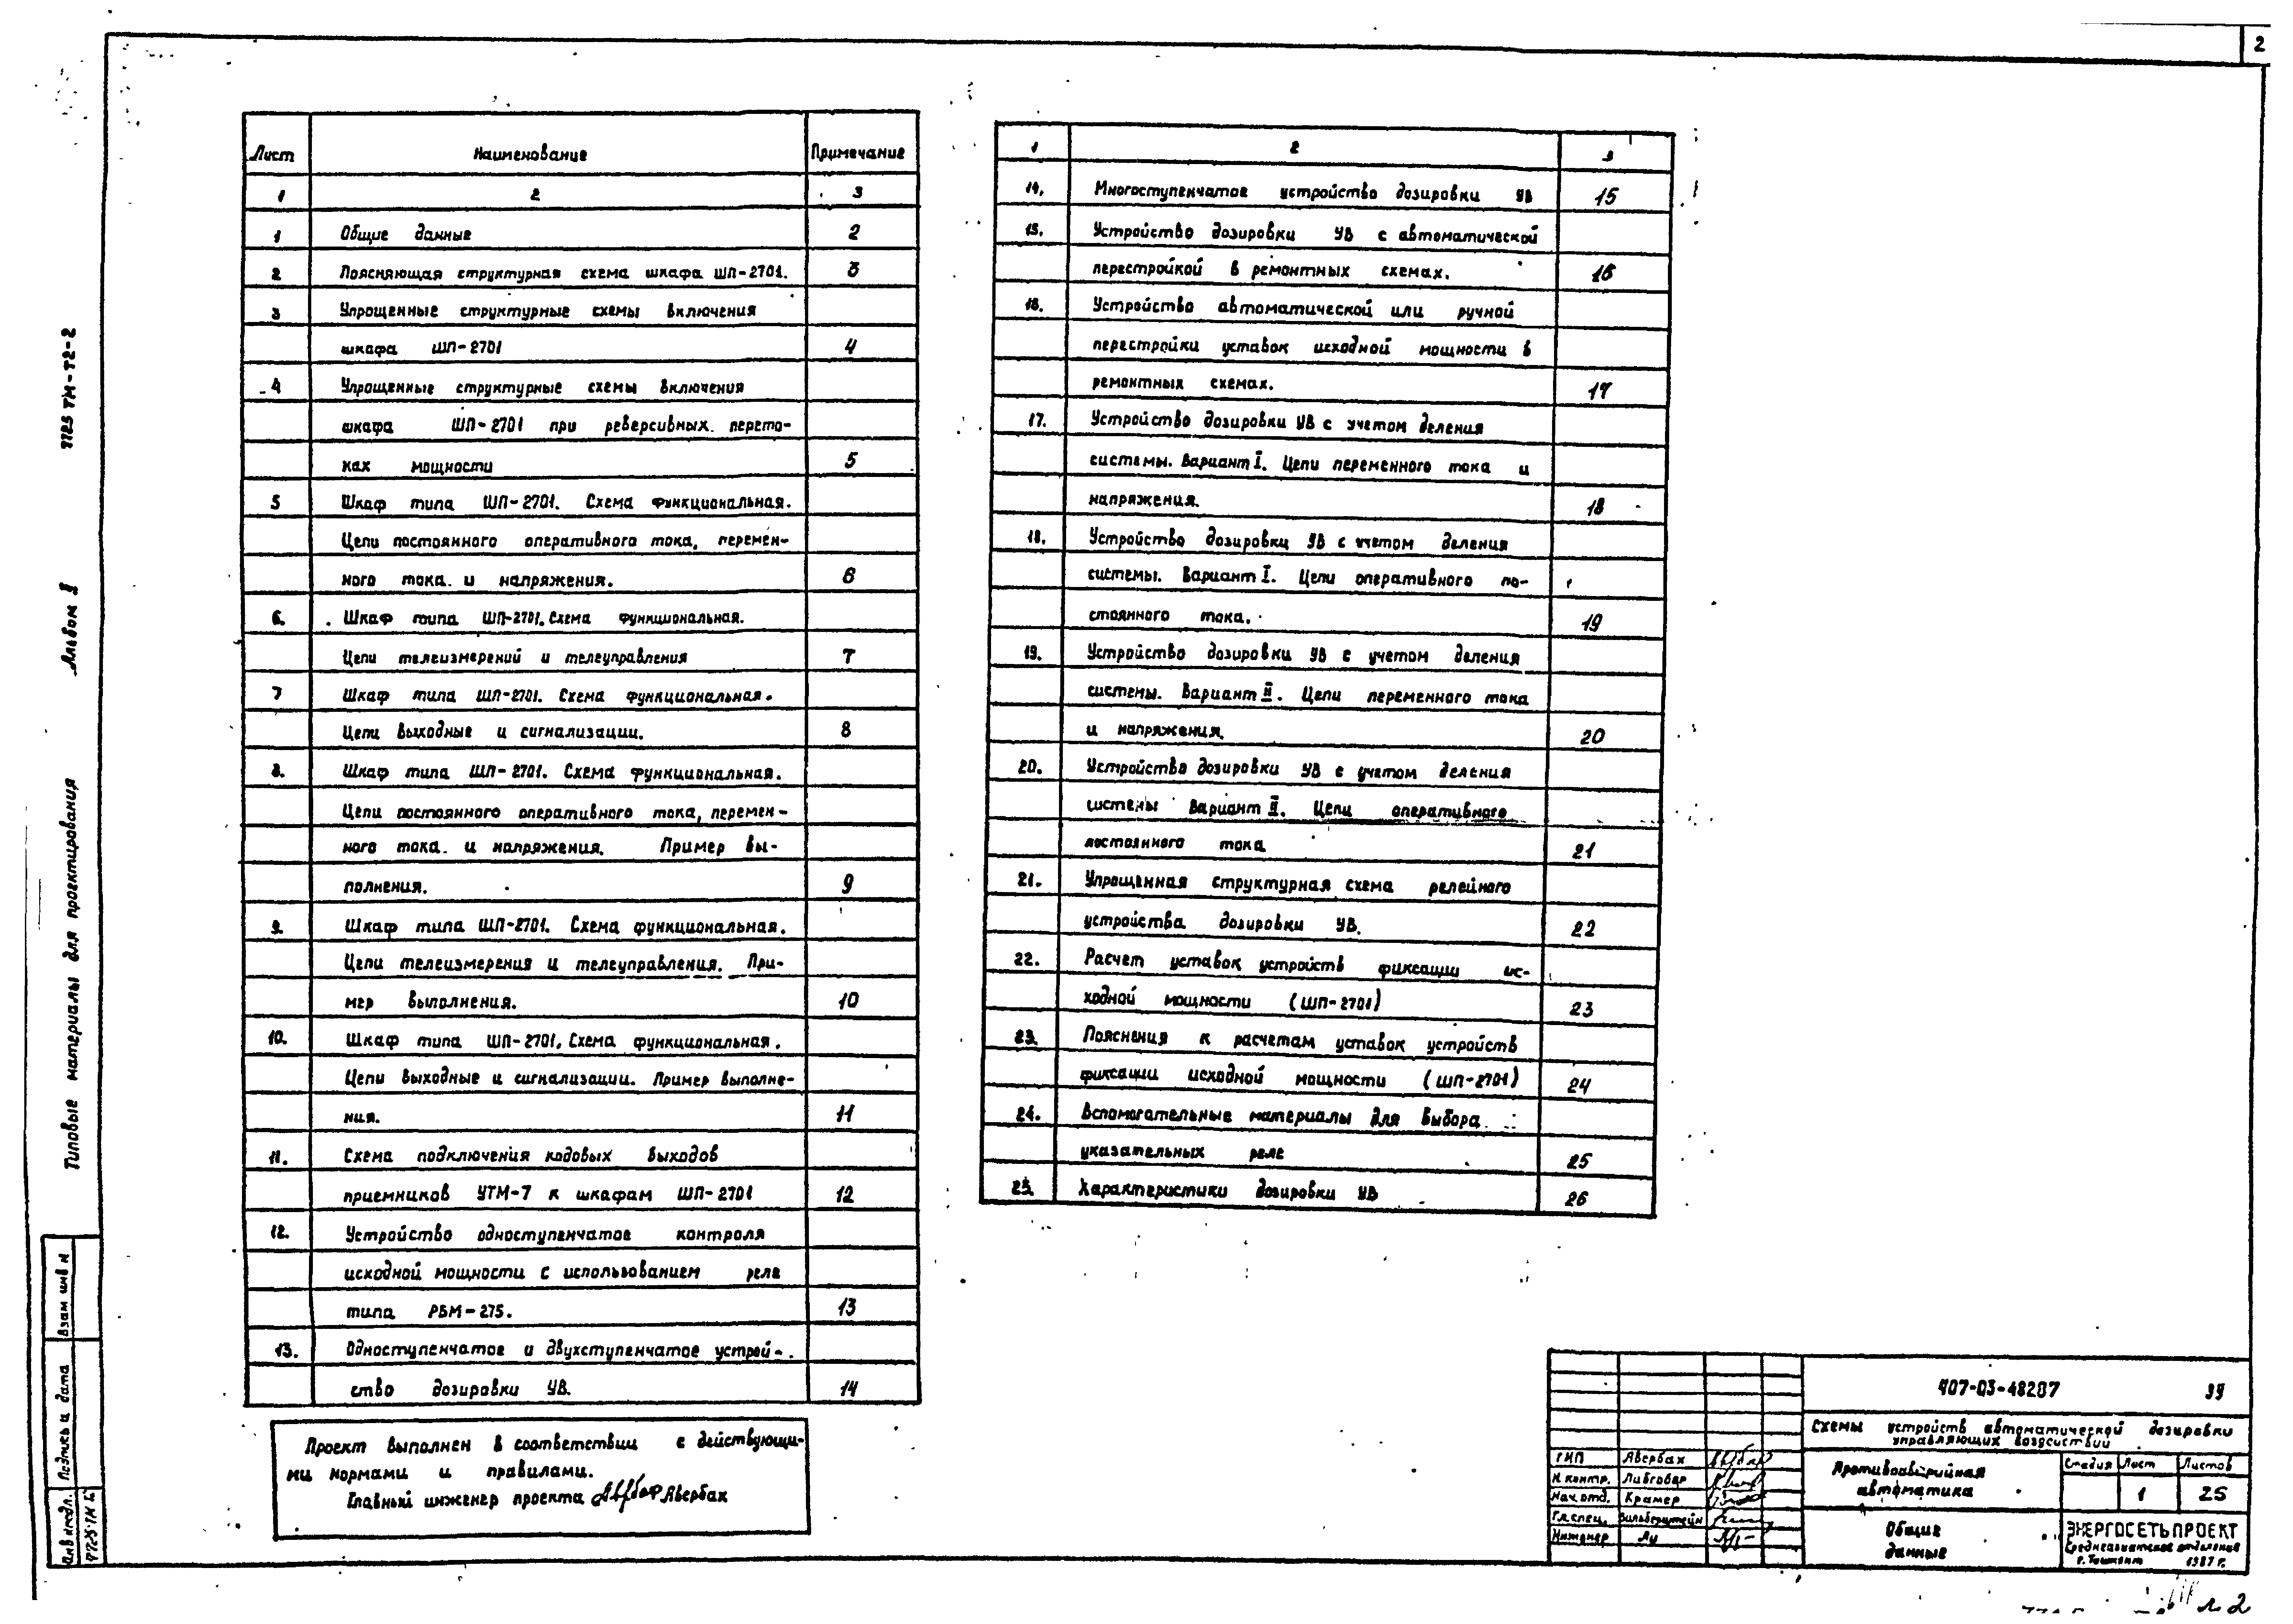 2
Лист Наименование Примечание
1 2 3
1 Общие данные 2
2 Поясняющая структурная схема шкафа ШП-2701. 3
3 Упрощенные структурные схемы включения
шкафа ШП-2701 4
4 Упрощенные структурные схемы включения
шкафа ШП-2701 при реверсивных перето-
ках мощности 5
5 Шкаф типа ШП-2701. Схема функциональная.
Цепи постоянного оперативного тока, перемен-
ного тока и напряжения. 6
6. Шкаф типа ШП-2701. Схема функциональная.
Цепи телеизмерений и телеуправления 7
7 Шкаф типа ШП-2701. Схема функциональная.
Цепи выходные и сигнализации. 8
8. Шкаф типа ШП-2701. Схема функциональная.
Цепи постоянного оперативного тока, перемен-
ного тока и напряжения. Пример вы-
полнения. 9
9. Шкаф типа ШП-2701. Схема функциональная.
Цепи телеизмерения и телеуправления. При-
мер выполнения. 10
10. Шкаф типа ШП-2701. Схема функциональная.
Цепи выходные и сигнализации. Пример выполне-
ния. 11
11. Схема подключения кодовых выходов
приемников УТМ-7 к шкафам ШП-2701 12
12. Устройство одноступенчатое контроля
исходной мощности с использованием реле
типа РБМ-275. 13
13. Одноступенчатое и двухступенчатое устрой-
ство дозировки УВ. 14
1 2 3
14. Многоступенчатое устройство дозировки УВ 15
15. Устройство дозировки УВ с автоматической
перестройкой в ремонтных схемах. 16
16. Устройство автоматической или ручной
перестройки уставок исходной мощности в
ремонтных схемах. 17
17. Устройство дозировки УВ с учетом деления
системы. Вариант I. Цепи переменного тока и
напряжения. 18
18. Устройство дозировки УВ с учетом деления
системы. Вариант I. Цепи оперативного по-
стоянного тока. 19
19. Устройство дозировки УВ с учетом деления
системы. Вариант II. Цепи переменного тока
и напряжения. 20
20. Устройство дозировки УВ с учетом деления
системы Вариант II. Цепи оперативного
постоянного тока 21
21. Упрощенная структурная схема релейного
устройства дозировки УВ. 22
22. Расчет уставок устройств фиксации ис-
ходной мощности (ШП-2701) 23
23. Пояснения к расчетам уставок устройств
фиксации исходной мощности (ШП-2701) 24
24. Вспомогательные материалы для выбора
указательных реле 25
25. Характеристики дозировки УВ 26
Проект выполнен в соответствии с действующи-
ми нормами и правилами.
Главный инженер проекта Авербах
7725 ТМ-Т2-2
Альбом I
Типовые материалы для проектирования
Взам инв N
Подпись и дата
Инв N подл.
407-03-48287 ЭЧ
Схемы устройств автоматической дозировки
управляющих воздействий
ГИП Авербах
Н. контр. Либгобер
Нач. отд. Крамер
Гл. спец. Зильберштейн
Инженер Лу
Противоаварийная
автоматика
Стадия Лист Листов
1 25
Общие
данные
ЭНЕРГОСЕТЬПРОЕКТ
Среднеазиатское отделение
г. Ташкент 1987 г.
л. 2